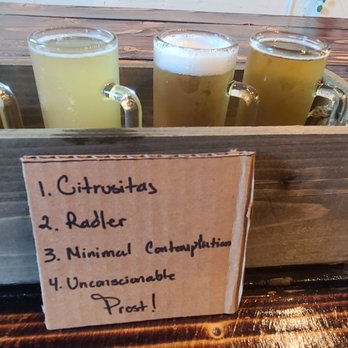 1. Citrusitas
2. Radler
3. Minimal Contemplation
4. Unconscionable
Prost!